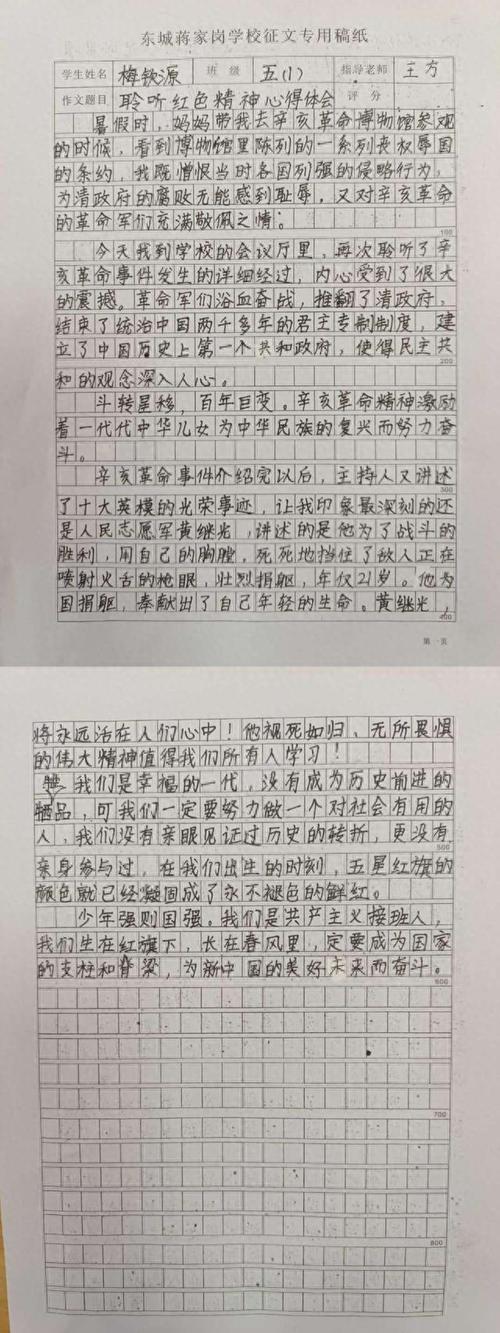 东城蒋家岗学校征文专用稿纸
学生姓名 梅钦源 班级 五(1) 指导老师 王方
作文题目 聆听红色精神心得体会 评分
暑假时，妈妈带我去辛亥革命博物馆参观
的时候，看到博物馆里陈列的一系列丧权辱国
的条约，我既憎恨当时各国列强的侵略行为，
为清政府的腐败无能感到耻辱，又对辛亥革命
的革命军们充满敬佩之情。
100
今天我到学校的会议厅里，再次聆听了辛
亥革命事件发生的详细经过，内心受到了很大
的震撼。革命军们浴血奋战，推翻了清政府，
结束了统治中国两千多年的君主专制制度，建
立了中国历史上第一个共和政府，使得民主共
200
和的观念深入人心。
斗转星移，百年巨变。辛亥革命精神激励
着一代代中华儿女为中华民族的复兴而努力奋
斗。
辛亥革命事件介绍完以后，主持人又讲述
300
了十大英模的光荣事迹，让我印象最深刻的还
是人民志愿军黄继光，讲述的是他为了战斗的
胜利，用自己的胸膛，死死地挡住了敌人正在
喷射火舌的枪眼，壮烈捐躯，年仅21岁。他为
国捐躯，奉献出了自己年轻的生命。黄继光，
400
第一页
将永远活在人们心中！他视死如归、无所畏惧
的伟大精神值得我们所有人学习！
我们是幸福的一代，没有成为历史前进的
牺品，可我们一定要努力做一个对社会有用的
人，我们没有亲眼见证过历史的转折，更没有
500
亲身参与过，在我们出生的时刻，五星红旗的
颜色就已经凝固成了永不褪色的鲜红。
少年强则国强。我们是共产主义接班人，
我们生在红旗下，长在春风里，定要成为国家
的支柱和脊梁，为新中国的美好未来而奋斗。
600
700
800